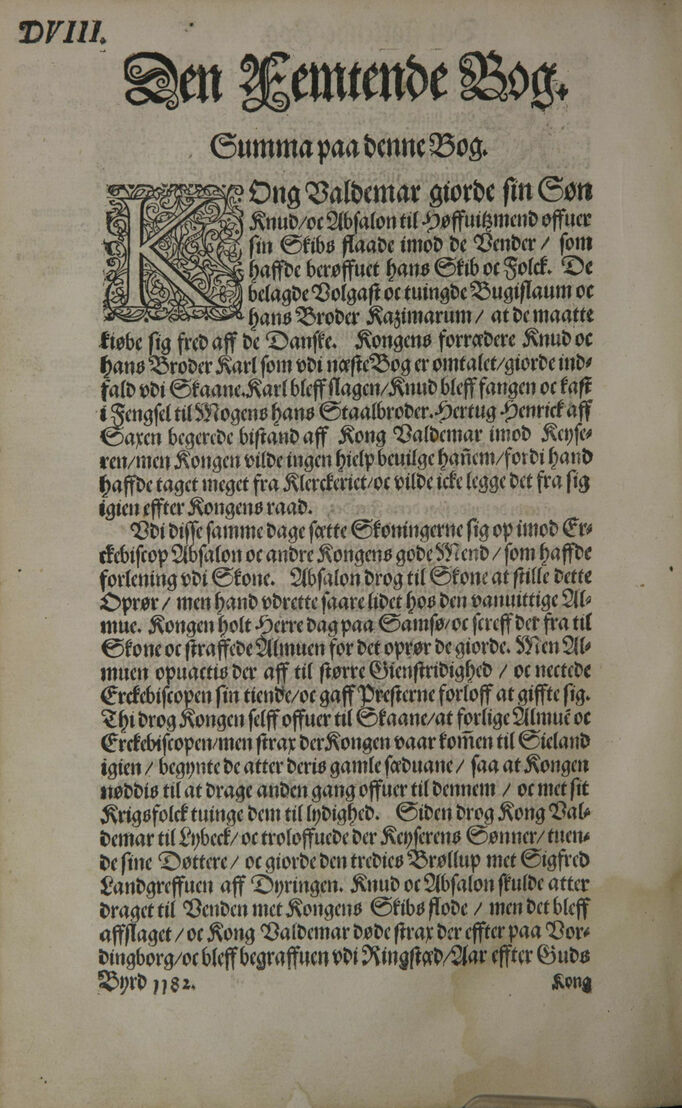 DVIII.
Den Femtende Bog.
Summa paa denne Bog.
KOng Valdemar giorde sin Søn
Knud/oc Absalon til Høffuitzmend offuer
sin Skibs flaade imod de Vender / som
haffde berøffuet hans Skib oc Folck. De
belagde Volgast oc tuingde Bugislaum oc
hans Broder Kazimarum / at de maatte
kiøbe sig fred aff de Danske. Kongens forrædere Knud oc
hans Broder Karl som vdi næste Bog er omtalet/giorde ind⸗
fald vdi Skaane. Karl bleff slagen/Knud bleff fangen oc kast
i Fengsel til Mogens hans Staalbroder. Hertug Henrick aff
Saxen begerede bistand aff Kong Valdemar imod Keyse⸗
ren/men Kongen vilde ingen hielp beuilge hañem/fordi hand
haffde taget meget fra Klerckeriet/oc vilde icke legge det fra sig
igien effter Kongens raad.
Vdi disse samme dage sætte Skoningerne sig op imod Er⸗
ckebiscop Absalon oc andre Kongens gode Mend / som haffde
forlening vdi Skone. Absalon drog til Skone at stille dette
Oprør / men hand vdrette saare lidet hos den vanuittige Al⸗
mue. Kongen holt Herre dag paa Samsø/oc screff der fra til
Skone oc straffede Almuen for det oprør de giorde. Men Al⸗
muen opuactis der aff til større Gienstridighed / oc nectede
Erckebiscopen sin tiende/oc gaff Presterne forloff at giffte sig.
Thi drog Kongen selff offuer til Skaane/at forlige Almuẽ oc
Erckebiscopen/men strax der Kongen vaar kom̃en til Sieland
igien / begynte de atter deris gamle sæduane / saa at Kongen
nøddis til at drage anden gang offuer til dennem / oc met sit
Krigsfolck tuinge dem til lydighed. Siden drog Kong Val⸗
demar til Lybeck/ oc troloffuede der Keyserens Sønner/ tuen⸗
de sine Døttere / oc giorde den tredies Brøllup met Sigfred
Landgreffuen aff Dyringen. Knud oc Absalon skulde atter
draget til Venden met Kongens Skibs flode / men det bleff
affslaget / oc Kong Valdemar døde strax der effter paa Vor⸗
dingborg/oc bleff begraffuen vdi Ringstæd/Aar effter Guds
Byrd 1182.
Kong